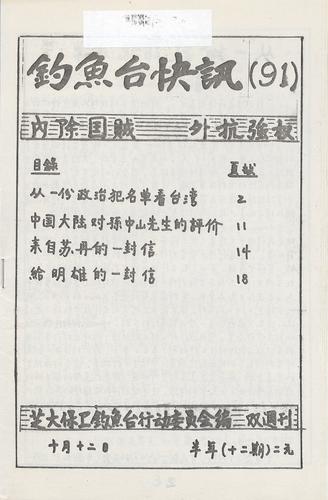 釣魚台快訊(91)
內除国賊 外抗強权
目錄 頁数
从一份政治犯名單看台湾 2
中国大陸对孫中山先生的評价 11
来自苏、丹的一封信 14
給明雄的一封信 18
芝大保卫釣魚台行动委員会編 双週刊
十月十二日 半年(十二期)二元